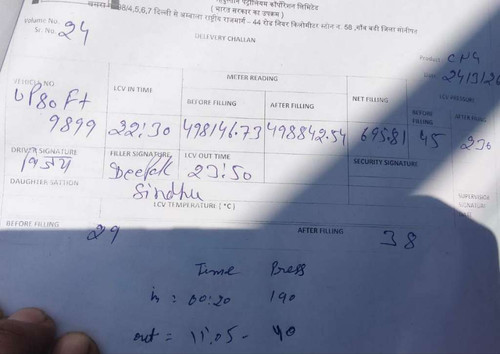 पेट्रोलियम कॉर्पोरेशन लिमिटेड
( भारत सरकार का उपक्रम )
4,5,6,7 दिल्ली से अम्बाला राष्ट्रीय राजमार्ग – 44 रोड नियर किलोमीटर स्टोन न. 68 ,गाँव बढी जिला सोनीपत
Volume No.
DELEVERY CHALLAN
Sr. No. 24
Product CNG
Date 24/3/26
VEHICLE NO LCV IN TIME METER READING LCV PRESSURE
UP80 FT BEFORE FILLING AFTER FILLING NET FILLING BEFORE FILLING AFTER FILLING
9899 22:30 498146.73 498842.54 695.81 45 230
DRIVER SIGNATURE FILLER SIGNATURE LCV OUT TIME SECURITY SIGNATURE
विजय Deepak 23:50
Sindhu
DAUGHTER SATTION
LCV TEMPERATURE ( °C )
SUPERVISOR SIGNATURE
BEFORE FILLING 29 AFTER FILLING 38
Time Press
in = 00:20 190
out = 11:05 - 40